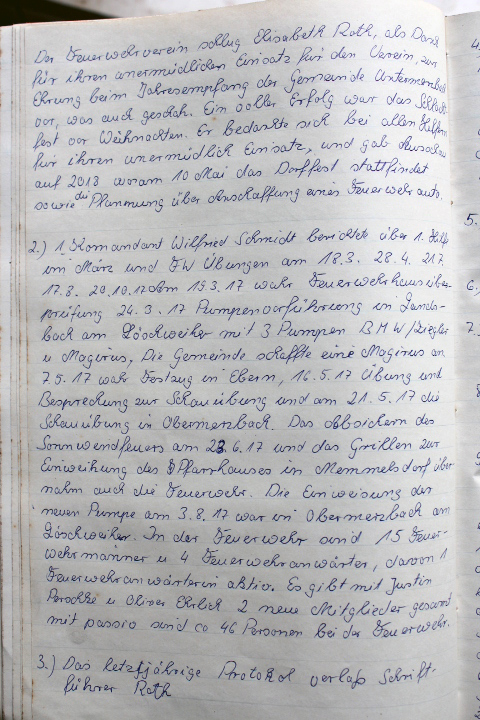 Der Feuerwehrverein schlug Elisabeth Roth, als Dank
für ihren unermüdlichen Einsatz für den Verein, zur
Ehrung beim Jahresempfang der Gemeinde Untermerzbach
vor, was auch geschah. Ein voller Erfolg war das Schlacht
fest vor Weihnachten. Er bedankte sich bei allen Helfern
für ihren unermüdlich Einsatz, und gab Ausschau
auf 2018 woram 10 Mai das Dorffest stattfindet
sowie die Plannung über Anschaffung eines Feuerwehrauto.
2.) 1. Komandant Wilfried Schmidt berichtete über 1. Hilfe
im März und FW Übungen am 18.3. 28.4. 21.7.
17.8. 20.10.17 Am 19.3.17 wahr Feuerwehrhausüber-
prüfung 24.3.17 Pumpenvorführung in Lands-
bach am Löschweiher mit 3 Pumpen BMW/Ziegler
u Magirus, Die Gemeinde schaffte eine Magirus an
7.5.17 wahr Festzug in Ebern, 16.5.17 Übung und
Besprechung zur Schauübung und am 21.5.17 die
Schauübung in Obermerzbach. Das Absichern des
Sonnwendfeuers am 23.6.17 und das Grillen zur
Einweihung des Pfarrhauses in Memmelsdorf über
nahm auch die Feuerwehr. Die Einweisung der
neuen Pumpe am 3.8.17 war in Obermerzbach am
Löschweiher. In der Feuerwehr sind 15 Feuer-
wehrmänner u 4 Feuerwehranwärter, davon 1
Feuerwehranwärterin aktiv. Es gibt mit Justin
Perschke u Oliver Ehrlich 2 neue Mitglieder gesamt
mit passiv sind ca 46 Personen bei der Feuerwehr.
3.) Das letztjährige Protokol verlaß Schrift-
führer Roth
4.
5.
6.
7.